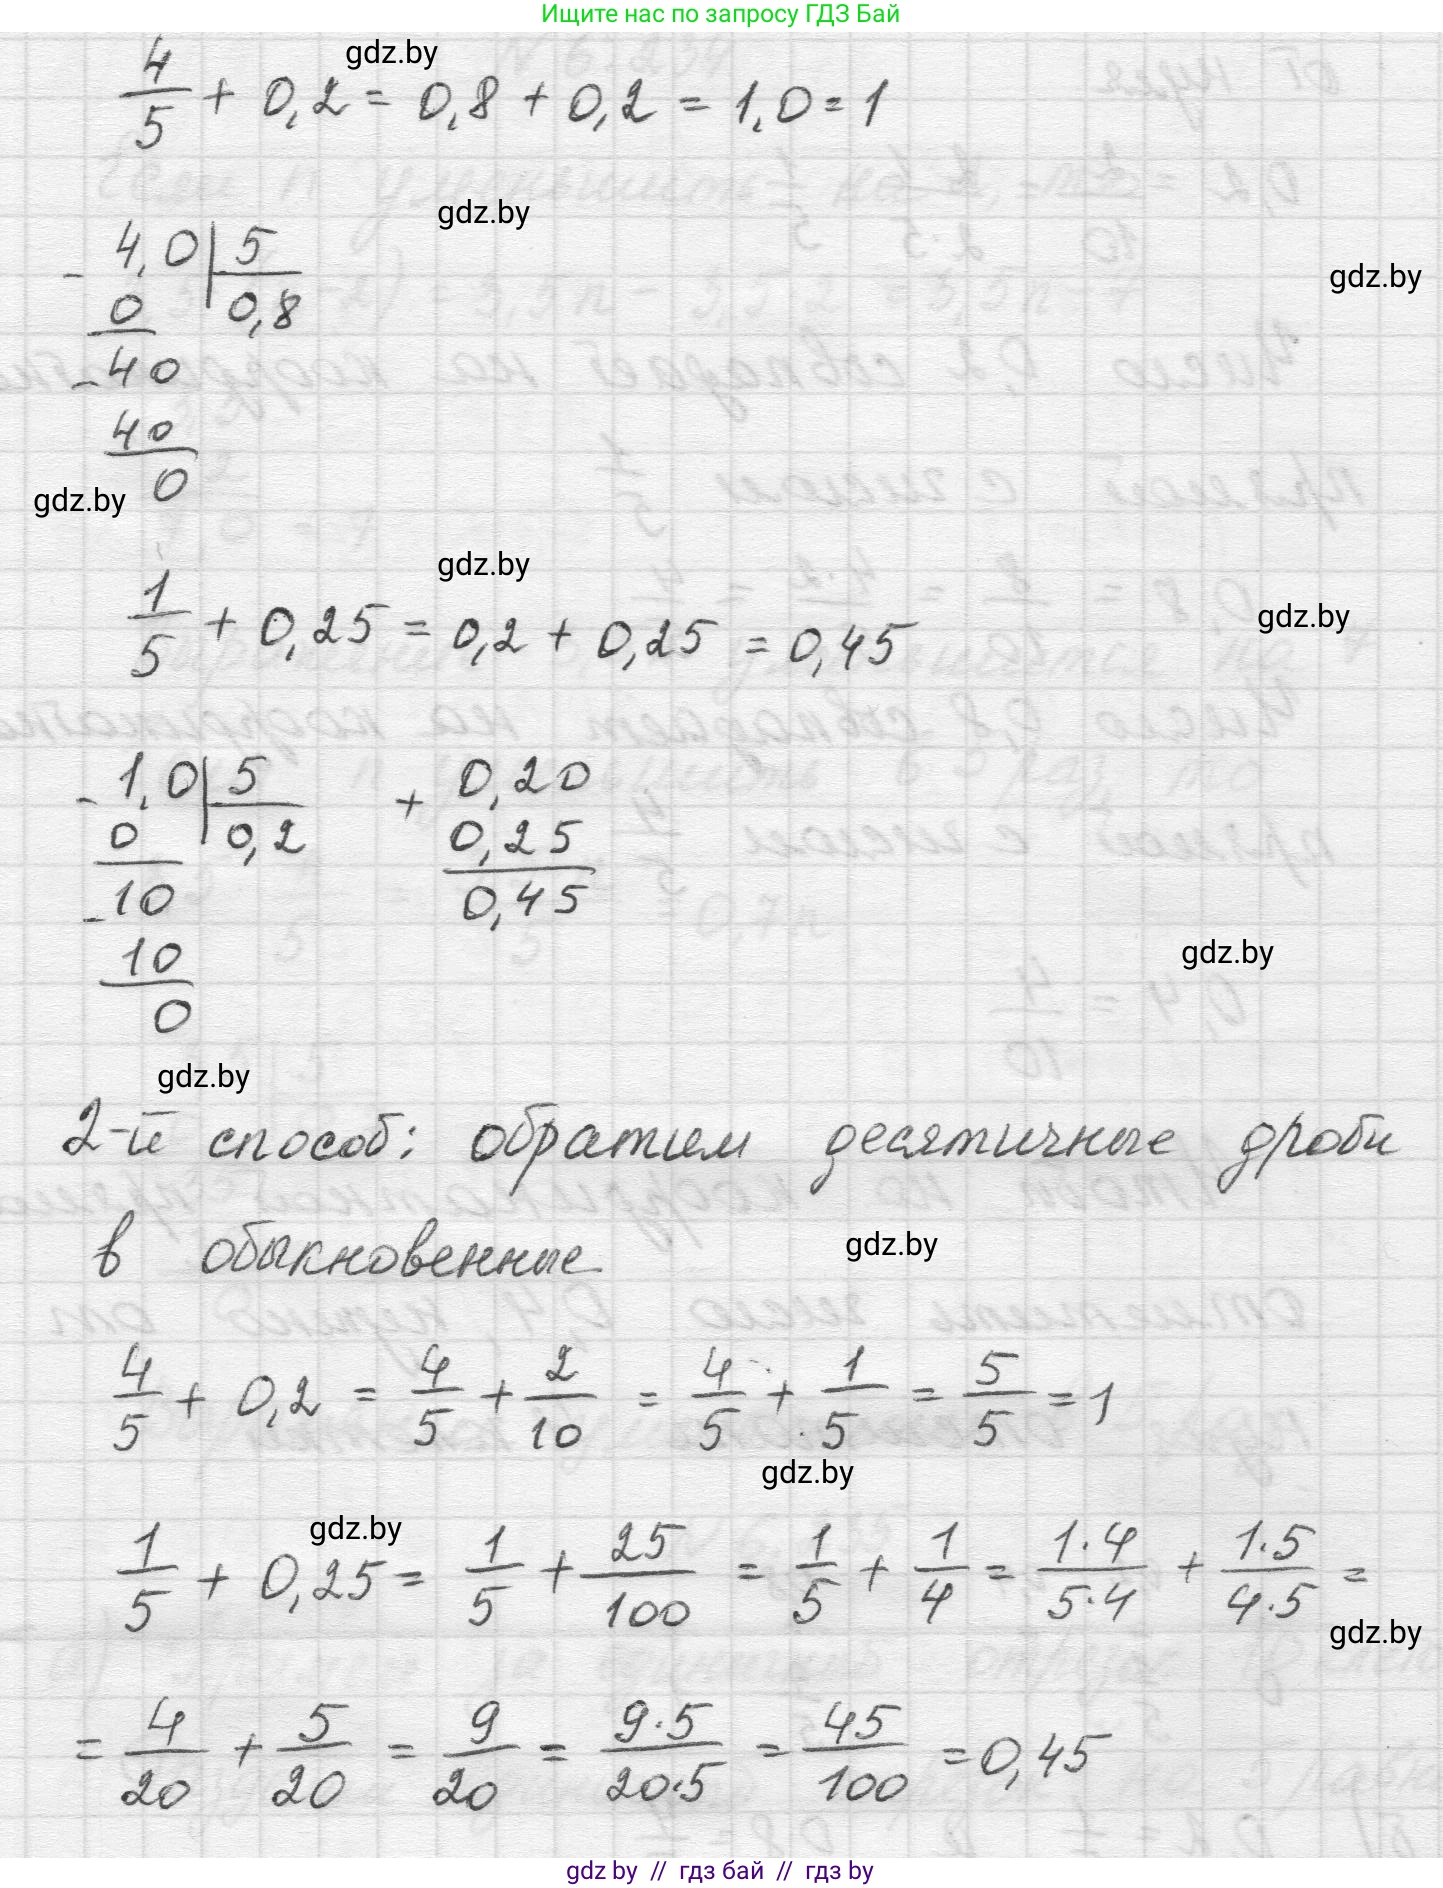 Ищите нас по запросу ГДЗ Бай
gdz.by
4/5 + 0,2 = 0,8 + 0,2 = 1,0 = 1
gdz.by
- 4,0 | 5
gdz.by
0 | 0,8
- 40
40
0
gdz.by
gdz.by
1/5 + 0,25 = 0,2 + 0,25 = 0,45
gdz.by
- 1,0 | 5 + 0,20
0 | 0,2 0,25
- 10 0,45
10
gdz.by
0
gdz.by
2-й способ: обратим десятичные дроби
в обыкновенные
gdz.by
4/5 + 0,2 = 4/5 + 2/10 = 4/5 + 1/5 = 5/5 = 1
gdz.by
gdz.by
1/5 + 0,25 = 1/5 + 25/100 = 1/5 + 1/4 = 1·4/5·4 + 1·5/4·5 =
gdz.by
= 4/20 + 5/20 = 9/20 = 9·5/20·5 = 45/100 = 0,45
gdz.by // гдз бай // гдз by